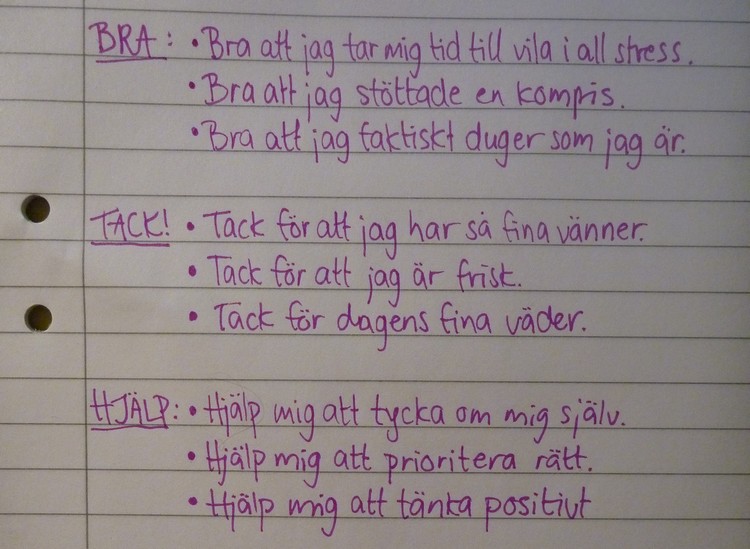 BRA: • Bra att jag tar mig tid till vila i all stress.
• Bra att jag stöttade en kompis.
• Bra att jag faktiskt duger som jag är.
TACK! • Tack för att jag har så fina vänner.
• Tack för att jag är frisk.
• Tack för dagens fina väder.
HJÄLP: • Hjälp mig att tycka om mig själv.
• Hjälp mig att prioritera rätt.
• Hjälp mig att tänka positivt